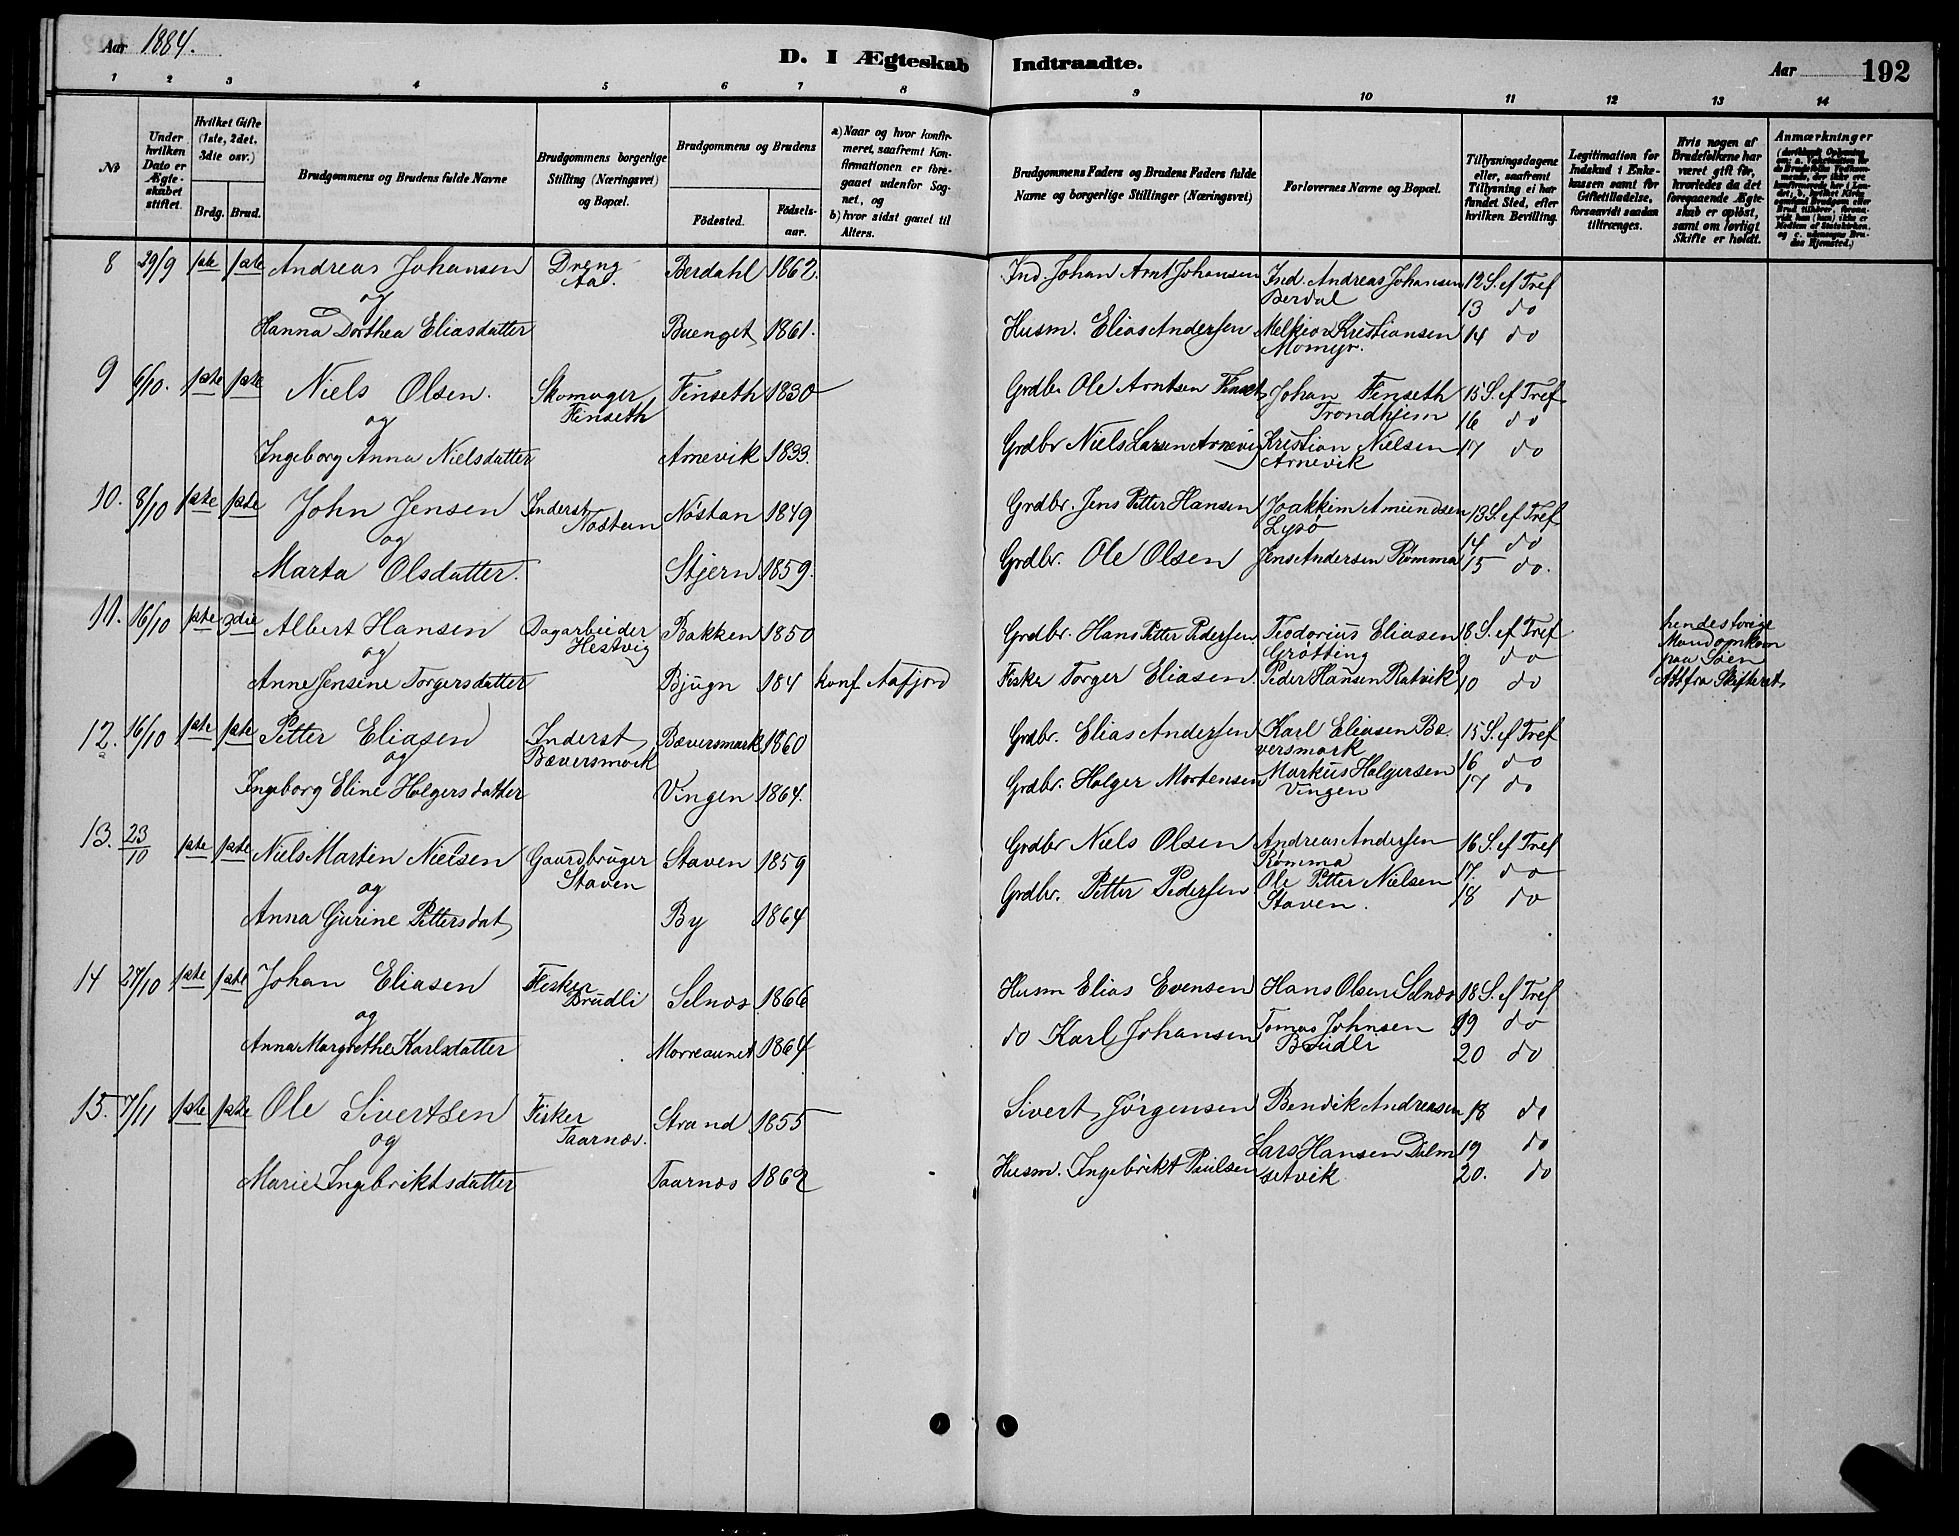 Aar 1884.
D. I Ægteskab Indtraadte.
Aar 192
1 2 3 4 5 6 7 8 9 10 11 12 13 14
№
Under hvilken Dato er Ægteskabet stiftet.
Hvilket Gifte (1ste, 2det, 3die osv.)
Brdg. Brud.
Brudgommens og Brudens fulde Navne
Brudgommens borgerlige Stilling (Næringsvei) og Bopæl.
Brudgommens og Brudens
Födested. Födselsaar.
a) Naar og hvor konfirmeret, saafremt Konfirmationen er foregaaet udenfor Sognet, og
b) hvor sidst gaaet til Alters.
Brudgommens Faders og Brudens Faders fulde Navne og borgerlige Stillinger (Næringsvei)
Forlovernes Navne og Bopæl.
Tillysningsdagene eller, saafremt Tillysning ei har fundet Sted, efter hvilken Bevilling.
Legitimation for Indskud i Enkekassen samt for Giftetilladelse, forsaavidt saadan tiltrænges.
Hvis nogen af Brudefolkene har været gift för, hvorledes da det foregaaende Ægteskab er oplöst, samt om lovligt Skifte er holdt.
Anmærkninger
8 29/9 1ste 1ste Andreas Johansen Dreng Berdahl 1862. Ind. Johan Arnt Johansen Ind. Andreas Johansen 12 S. ef Tref
og Aal. Berdal 13 do
Hanna Dorthea Eliasdatter Buenget 1861. Husm. Elias Andersen Melkior Kristiansen 14 do
Momyr.
9 6/10. 1ste 1ste Niels Olsen. Skomager Finseth 1830 Grdbr Ole Arntsen Finset Johan Finseth 15 S. ef Tref
og Finseth Trondhjem 16 do
Ingeborg Anna Nielsdatter Arnevik 1833. Grdbr Niels Larsen Arnevig Kristian Nielsen 17 do
Arnevik
10. 8/10 1ste 1ste John Jensen Inderst Nöstan 1849 Grdbr. Jens Petter Hansen Joakkim Amundsen 13 S. ef Tref
og Nöstan Lysö 14 do
Marta Olsdatter. Stjern 1859. Grdbr. Ole Olsen Jens Andersen Römma 15 do.
11. 16/10 1ste 3die Albert Hansen Dagarbeider Bakken 1850 Grdbr. Hans Petter Pedersen Teodorius Eliasen 8 S. ef Tref hendes forige
og Hestvig Grötting 9 do Mand omkom
Anne Jensine Torgersdatter Bjugn 184 konf. Aafjord Fisker Torger Eliasen Peder Hansen Ratvik 10 do paa Söen
Att fra Skifteret
12. 16/10 1ste 1ste Petter Eliasen Inderst Bæversmark 1860 Grdbr. Elias Andersen Karl Eliasen Bæ 15 S. ef Tref
og Bæversmark versmark 16 do
Ingeborg Eline Holgersdatter Vingen 1864. Grdbr. Holger Mortensen Markus Holgersen 17 do
Vingen
13. 23/10 1ste 1ste Niels Martin Nielsen Gaardbruger Staven 1859 Grdbr Niels Olsen Andreas Andersen 16 S. ef Tref
og Staven Römma 17. do
Anna Gurine Pettersdat By 1864 Grdbr. Petter Pedersen Ole Petter Nielsen 18 do
Staven.
14 27/10 1ste 1ste Johan Eliasen Fisker Selnæs 1866 Husm Elias Evensen Hans Olsen Selnæs 18 S. ef Tref
og Brudli 19 do
Anna Margrethe Karlsdatter Morreaunet 1864 do Karl Johansen Tomas Johnsen 20 do
Brudli
15. 7/11 1ste 1ste Ole Sivertsen Fisker Strand 1855 Sivert Jörgensen Bendik Andreasen 18 do
og Taarnæs. Lars Hansen Dilm 19 do
Marie Ingebriktsdatter Taarnæs 1862 Husm. Ingebrikt Paulsen setvik 20. do